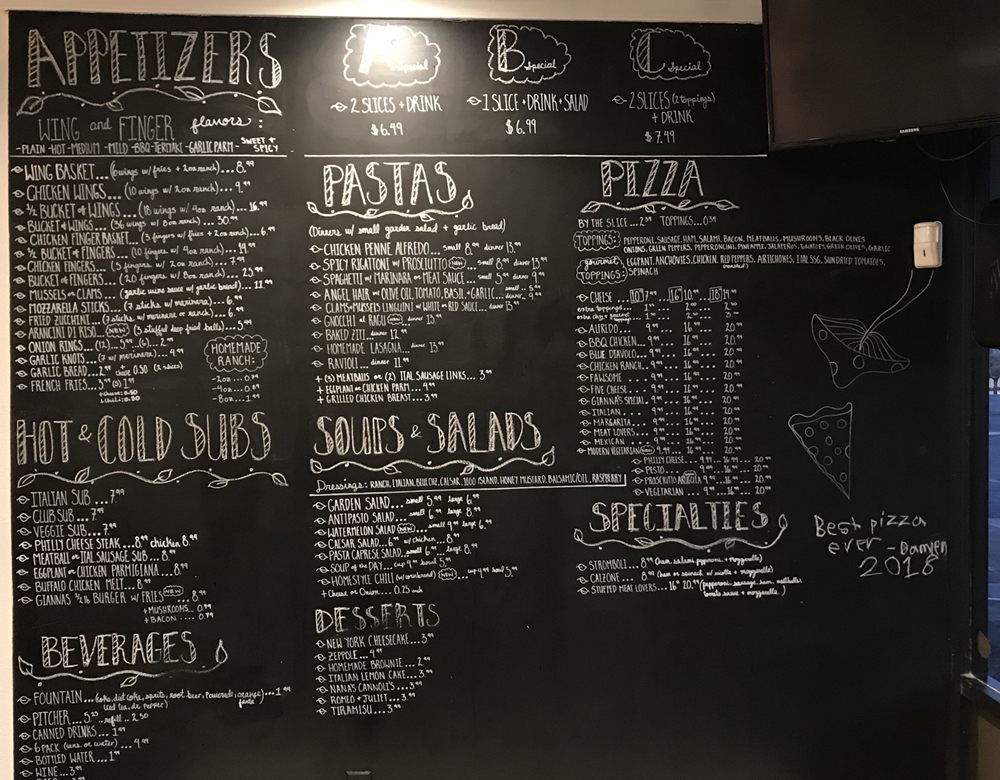 APPETIZERS
WING and FINGER flavors:
-PLAIN -HOT -MEDIUM -MILD -BBQ -TERIYAKI -GARLIC PARM -SWEET + SPICY
WING BASKET... (6 wings w/ fries + 2oz ranch)... 8.99
CHICKEN WINGS... (10 wings w/ 2oz ranch)... 9.99
1/2 BUCKET of WINGS... (18 wings w/ 4oz ranch)... 16.99
BUCKET of WINGS... (36 wings w/ 8oz ranch)... 30.99
CHICKEN FINGER BASKET... (3 fingers w/ fries + 2oz ranch)... 6.99
1/2 BUCKET of FINGERS... (10 fingers w/ 4oz ranch)... 14.99
CHICKEN FINGERS... (5 fingers w/ 2oz ranch)... 7.99
BUCKET of FINGERS... (20 fingers w/ 8oz ranch)... 25.99
MUSSELS or CLAMS... (garlic wine sauce w/ garlic bread)... 11.99
MOZZARELLA STICKS... (7 sticks w/ marinara)... 6.99
FRIED ZUCCHINI... (7 sticks w/ marinara or ranch)... 6.99
ARANCINI DI RISO... NEW (3 stuffed deep fried balls)... 5.99
ONION RINGS... (12)... 5.99 (6)... 2.99
GARLIC KNOTS... (7 w/ marinara)... 4.99
GARLIC BREAD... 2.99 cheese 0.50 (2 slices)
FRENCH FRIES... 3.99
+Cheese: 0.50
+Chili: 0.50
HOMEMADE RANCH:
-2oz... 0.50
-4oz... 0.99
-8oz... 1.99
HOT & COLD SUBS
ITALIAN SUB... 7.99
CLUB SUB... 7.99
VEGGIE SUB... 7.99
PHILLY CHEESE STEAK... 8.99 chicken 8.99
MEATBALL or ITAL SAUSAGE SUB... 8.99
EGGPLANT or CHICKEN PARMIGIANA... 8.99
BUFFALO CHICKEN MELT... 8.99
GIANNAS 1/2 lb BURGER w/ FRIES NEW... 8.99
+MUSHROOMS... 0.99
+BACON.... 0.79
BEVERAGES
FOUNTAIN... (coke, diet coke, sprite, root beer, Powerade, orange fanta, iced tea, dr pepper)... 1.99
PITCHER... 5.25 refill... 2.50
CANNED DRINKS... 1.00
6 PACK (cans or water)... 4.99
BOTTLED WATER... 1.00
WINE... 3.99
A Special
2 SLICES + DRINK
$6.49
B Special
1 SLICE + DRINK + SALAD
$6.99
C Special
2 SLICES (2 toppings) + DRINK
$7.49
PASTAS
(Dinners w/ small garden salad + garlic bread)
CHICKEN PENNE ALFREDO... small 8.99 dinner 13.99
SPICY RIGATTONI w/ PROSCIUTTO NEW small 8.99 dinner 13.99
SPAGHETTI w/ MARINARA or MEAT SAUCE... small 5.99 dinner 9.99
ANGEL HAIR w/ OLIVE OIL, TOMATO, BASIL + GARLIC... small.. 5.99 dinner.. 9.99
CLAMS + MUSSELS LINGUINI w/ WHITE or RED SAUCE... dinner 13.99
GNOCCHI al RAGU NEW dinner 13.99
BAKED ZITI... dinner 12.99
HOMEMADE LASAGNA... dinner 13.99
RAVIOLI... dinner 11.99
+ (3) MEATBALLS or (2) ITAL SAUSAGE LINKS... 3.99
+ EGGPLANT or CHICKEN PARM... 4.99
+ GRILLED CHICKEN BREAST... 3.99
SOUPS & SALADS
Dressings: RANCH, ITALIAN, BLUE CHZ, CAESAR, 1000 ISLAND, HONEY MUSTARD, BALSAMIC/OIL, RASPBERRY
GARDEN SALAD... small 5.99 large 6.99
ANTIPASTO SALAD... small 6.99 large 8.99
WATERMELON SALAD NEW small 4.99 large 6.99
CAESAR SALAD... 6.99 w/ chicken... 8.99
PASTA CAPRESE SALAD... small 6.99 large 8.99
SOUP of the DAY... cup 4.99 bowl 5.99
HOMESTYLE CHILI (w/ cornbread) NEW... cup 4.99 bowl 5.99
+ Cheese or Onion.... 0.25 each
DESSERTS
NEW YORK CHEESECAKE... 3.99
ZEPPOLE... 4.99
HOMEMADE BROWNIE... 2.99
ITALIAN LEMON CAKE... 3.99
NANA'S CANNOLI'S... 3.99
ROMEO + JULIET... 3.99
TIRAMISU... 3.99
PIZZA
BY THE SLICE... 2.59 TOPPINGS... 0.59
TOPPINGS: PEPPERONI, SAUSAGE, HAM, SALAMI, BACON, MEATBALLS, MUSHROOMS, BLACK OLIVES
ONIONS, GREEN PEPPERS, PEPPERONCINI, PINEAPPLE, JALAPEÑOS, TOMATOES, GREEN OLIVES, GARLIC
gourmet TOPPINGS: EGGPLANT, ANCHOVIES, CHICKEN, RED PEPPERS (roasted), ARTICHOKES, ITAL SSG, SUNDRIED TOMATOES,
SPINACH
CHEESE... 10" 7.99... 16" 10.99... 18" 14.99
ALFREDO... 9.99... 16.99... 20.99
BBQ CHICKEN... 9.99... 16.99... 20.99
BLUE DIAVOLO... 9.99... 16.99... 20.99
CHICKEN RANCH... 9.99... 16.99... 20.99
FAWSOME... 9.99... 16.99... 20.99
FIVE CHEESE... 9.99... 16.99... 20.99
GIANNA'S SPECIAL. 9.99... 16.99... 20.99
ITALIAN... 9.99... 16.99... 20.99
MARGARITA... 9.99... 16.99... 20.99
MEAT LOVERS... 9.99... 16.99... 20.99
MEXICAN... 9.99... 16.99... 20.99
MODERN VEGETARIAN NEW 9.99... 16.99... 20.99
PHILLY CHEESE... 9.99... 16.99... 20.99
PESTO... 9.99... 16.99... 20.99
PROSCIUTTO ARUGULA 9.99... 16.99... 20.99
VEGETARIAN 9.99... 16.99... 20.99
SPECIALTIES
STROMBOLI... 8.99 (ham, salami, pepperoni + mozzarella)
CALZONE... 8.99 (ham or spinach w/ ricotta + mozzarella)
STUFFED MEAT LOVERS... 16" 20.99 (pepperoni, sausage, ham, meatballs tomato sauce + mozzarella)
Best pizza
ever -Damyen
2018
SAMSUNG